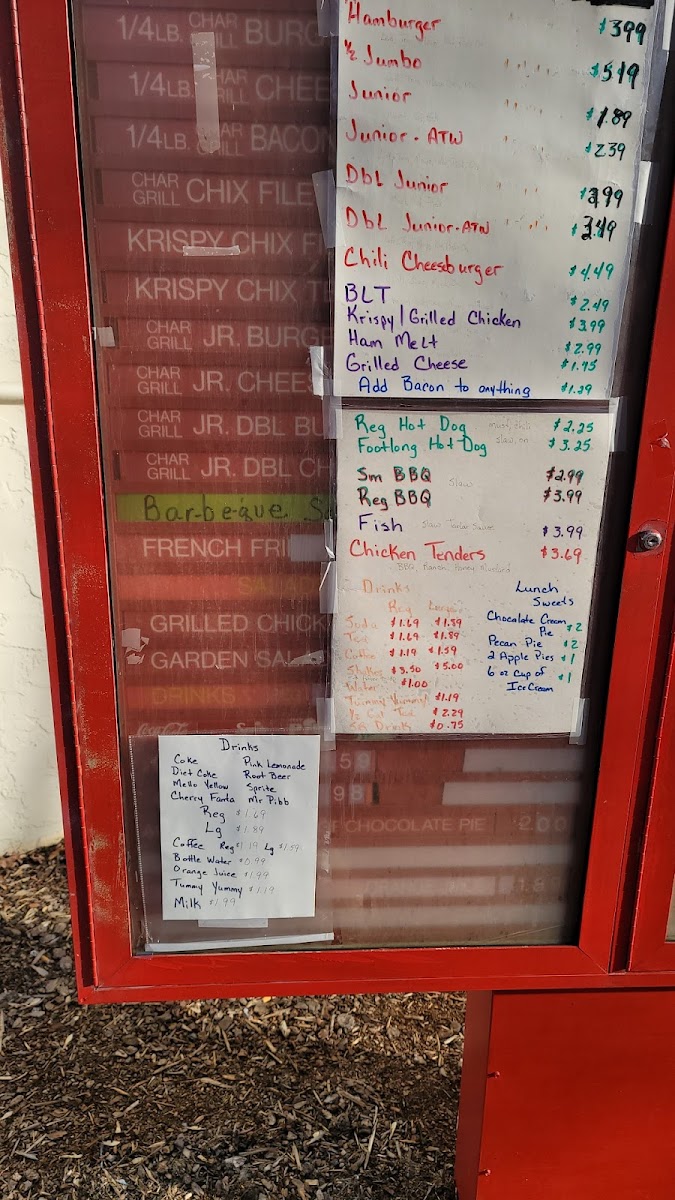 1/4 LB. CHAR GRILL BURG
1/4 LB. CHAR GRILL CHEE
1/4 LB. CHAR GRILL BACON
CHAR GRILL CHIX FILE
KRISPY CHIX FI
KRISPY CHIX T
CHAR GRILL JR. BURGE
CHAR GRILL JR. CHEES
CHAR GRILL JR. DBL BU
CHAR GRILL JR. DBL CH
Bar-be-que S
FRENCH FRI
GRILLED CHICK
GARDEN SAL
DRINKS
Hamburger $3.99
1/2 Jumbo $5.19
Junior $1.89
Junior - ATW $2.39
Dbl Junior $2.99
Dbl Junior-ATW $3.49
Chili Cheesburger $4.49
BLT $2.49
Krispy/Grilled Chicken $3.99
Ham Melt $2.99
Grilled Cheese $1.75
Add Bacon to anything $1.29
Reg Hot Dog $2.25
Footlong Hot Dog slaw, on $3.25
Sm BBQ slaw $2.99
Reg BBQ $3.99
Fish Slaw Tartar Sauce $3.99
Chicken Tenders $3.69
BBQ, Ranch, Honey Mustard
Drinks
Reg Large
Soda $1.69 $1.89
Tea $1.69 $1.89
Coffee $1.19 $1.59
Shakes $3.50 $5.00
Water $1.00
Tummy Yummy $1.19
1/2 Gal Tea $2.29
Sm Drink $0.75
Lunch
Sweets
Chocolate Cream
Pie $2
Pecan Pie $2
2 Apple Pies $1
6 oz Cup of $1
Ice Cream
CHOCOLATE PIE 2.00
Drinks
Coke Pink Lemonade
Diet Coke Root Beer
Mello Yellow Sprite
Cherry Fanta Mr Pibb
Reg $1.69
Lg $1.89
Coffee Reg $1.19 Lg $1.59
Bottle Water $0.99
Orange Juice $1.99
Tummy Yummy $1.19
Milk $1.99